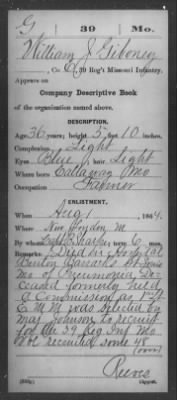 G 39 Mo.
William J Giboney
, Co. G, 39 Reg't Missouri Infantry.
Appears on
Company Descriptive Book
of the organization named above.
DESCRIPTION.
Age 36 years; height 5 feet 10 inches.
Complexion Light
Eyes Blue, hair Light
Where born Callaway Mo
Occupation Farmer
ENLISTMENT.
When Aug 1, 1864.
Where New London M
By whom Sharp, term 6 mos.
Remarks: Died in Hospital
Benton Barracks St Louis
Mo of Pneumonia, De-
ceased formerly held
a Commission as 1st Lt
E M M was selected by
Maj Johnson to recruit
for the 39 Reg Inf Mo
Vol recruited some 48
(over)
Reeves
Copyist.